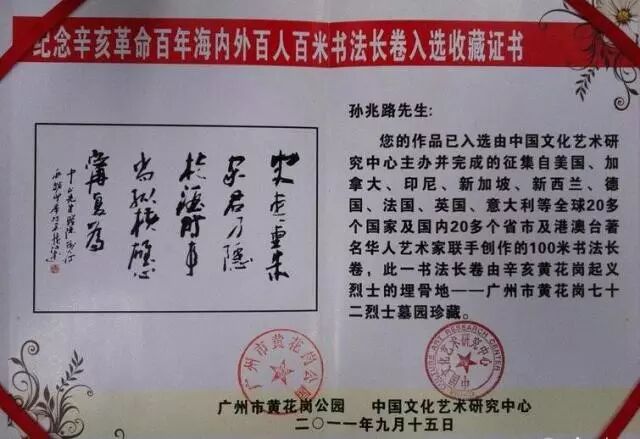 纪念辛亥革命百年海内外百人百米书法长卷入选收藏证书
孙兆路先生:
您的作品已入选由中国文化艺术研
究中心主办并完成的征集自美国、加
拿大、印尼、新加坡、新西兰、德
国、法国、英国、意大利等全球20多
个国家及国内20多个省市及港澳台著
名华人艺术家联手创作的100米书法长
卷，此一书法长卷由辛亥黄花岗起义
烈士的埋骨地——广州市黄花岗七十
二烈士墓园珍藏。
广州市黄花岗公园 中国文化艺术研究中心
二〇一一年九月十五日
广州市黄花岗公园
CULTURE ART RESEARCH CENTER
中国文化艺术研究中心